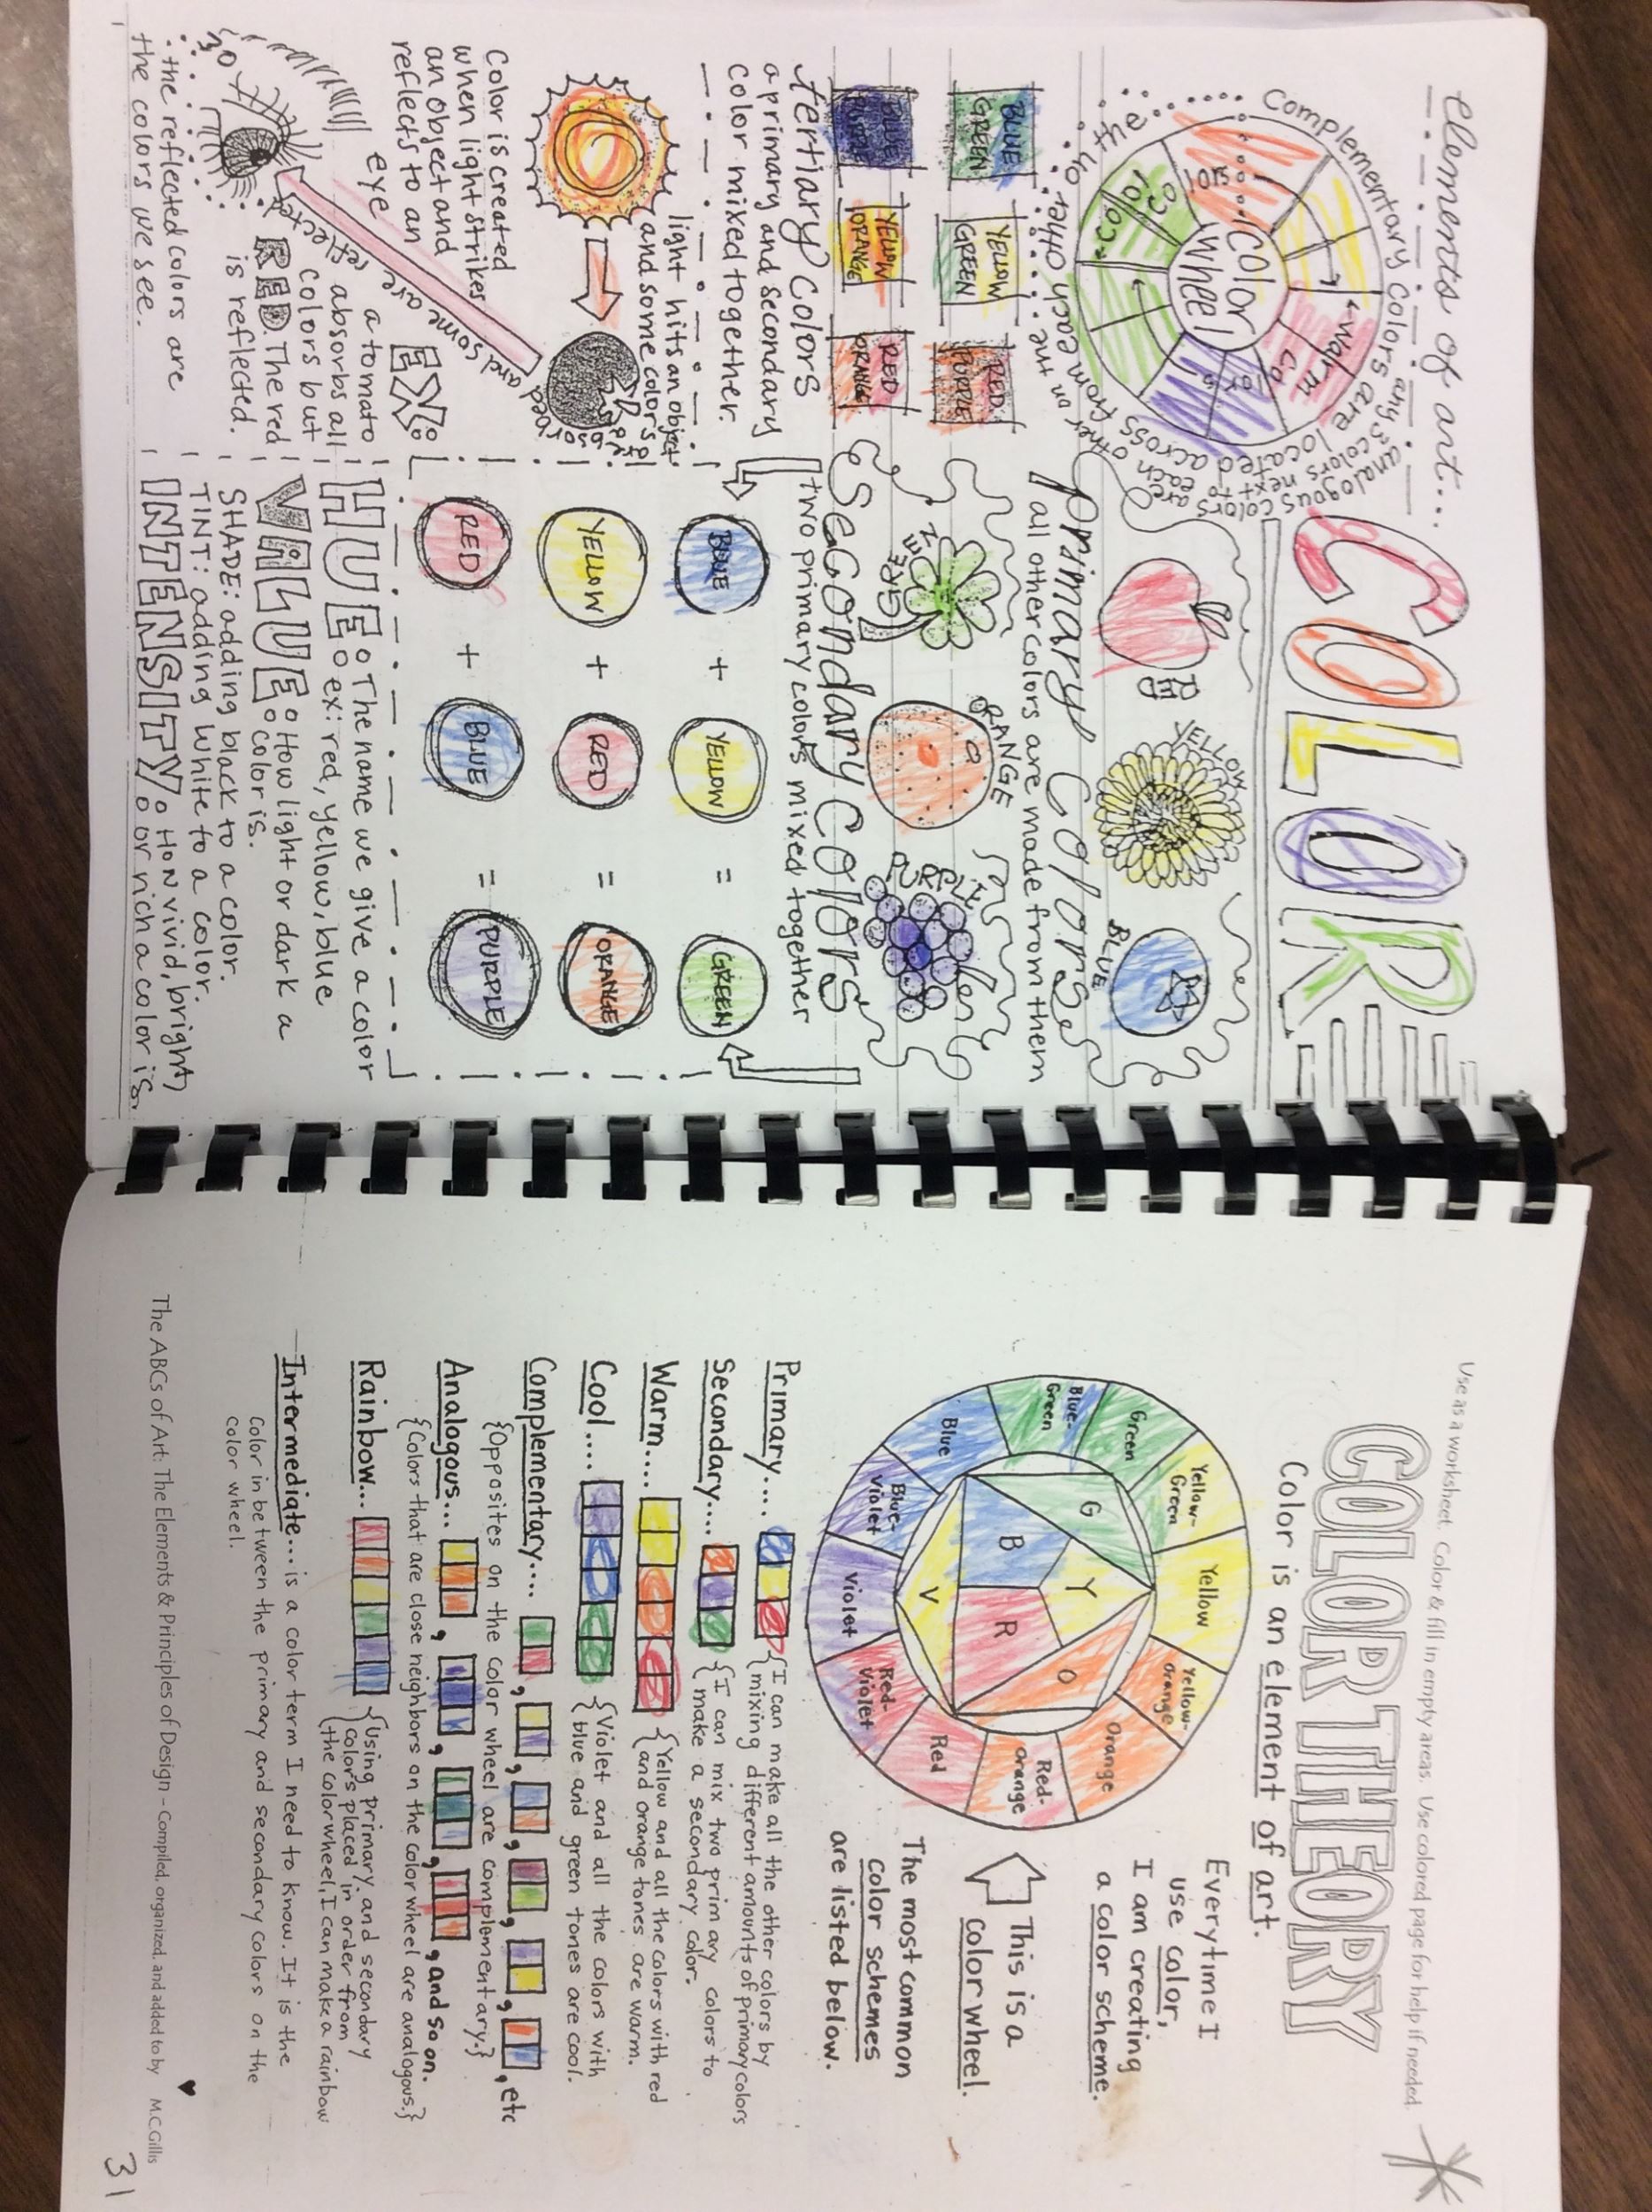 elements of art...
COLOR
Complementary colors are located across from each other on the
analogous colors are any 3 colors next to each other on the
color
wheel
warm
cool
RED
YELLOW
BLUE
primary colors
all other colors are made from them
GREEN
ORANGE
PURPLE
Secondary colors
two primary colors mixed together
BLUE
GREEN
YELLOW
GREEN
RED
PURPLE
BLUE
PURPLE
YELLOW
ORANGE
RED
ORANGE
tertiary colors
a primary and secondary
color mixed together.
BLUE + YELLOW = GREEN
YELLOW + RED = ORANGE
RED + BLUE = PURPLE
light hits an object
and some colors
absorbed
and some are reflected
Color is created
when light strikes
an object and
reflects to an
eye
EX:
a tomato
absorbs all
colors but
RED. The red
is reflected.
∴ the reflected colors are
the colors we see.
HUE: The name we give a color
ex: red, yellow, blue
VALUE: How light or dark a
color is.
SHADE: adding black to a color.
TINT: adding white to a color.
INTENSITY: How vivid, bright,
or rich a color is.
Use as a worksheet. Color & fill in empty areas. Use colored page for help if needed.
COLOR THEORY
Color is an element of art.
Yellow
Yellow-
Orange
Orange
Red-
Orange
Red
Red-
Violet
Violet
Blue-
Violet
Blue
Blue-
Green
Green
Yellow-
Green
G
B
Y
R
O
V
Everytime I
use color,
I am creating
a color scheme.
This is a
color wheel.
The most common
color schemes
are listed below.
Primary.... {I can make all the other colors by
mixing different amounts of primary colors
Secondary.... {I can mix two primary colors to
make a secondary color.
Warm..... {Yellow and all the colors with red
and orange tones are warm.
Cool.... {Violet and all the colors with
blue and green tones are cool.
Complementary.... , , , , , , etc
{Opposites on the color wheel are complementary.}
Analogous... , , , , and so on.
{Colors that are close neighbors on the color wheel are analogous.}
Rainbow... {Using primary, and secondary
colors placed in order from
the colorwheel, I can make a rainbow
Intermediate... is a color term I need to know. It is the
color in between the primary and secondary colors on the
color wheel.
The ABCs of Art: The Elements & Principles of Design – Compiled, organized, and added to by M.C.Gillis
31